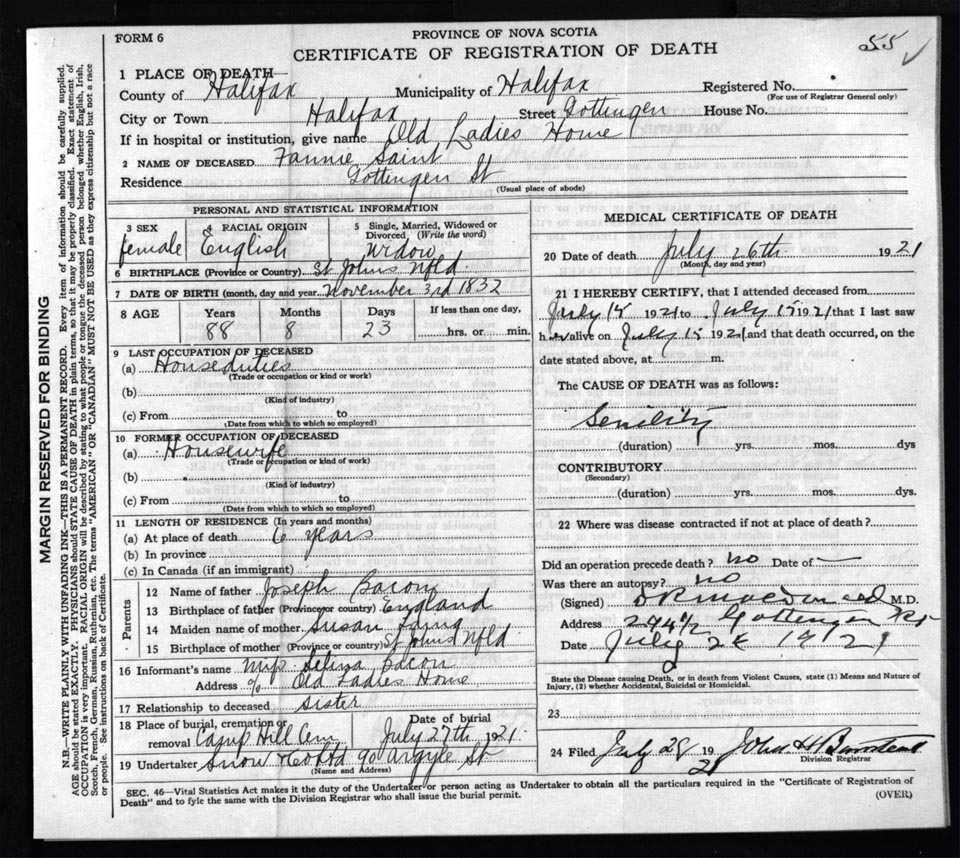 FORM 6
PROVINCE OF NOVA SCOTIA
CERTIFICATE OF REGISTRATION OF DEATH
55 ✓
MARGIN RESERVED FOR BINDING
N.B.—WRITE PLAINLY WITH UNFADING INK—THIS IS A PERMANENT RECORD. Every item of information should be carefully supplied.
AGE should be stated EXACTLY. PHYSICIANS should STATE CAUSE OF DEATH in plain terms, so that it may be properly classified. Exact statement of
OCCUPATION is very important. RACIAL ORIGIN will be described by stating to what people or tongue the deceased person belonged whether English, Irish,
Scotch, French, German, Russian, Ruthenian, etc. The terms "AMERICAN" OR "CANADIAN" MUST NOT BE USED as they express citizenship but not a race
or people. See instructions on back of Certificate.
1 PLACE OF DEATH—
County of Halifax Municipality of Halifax Registered No.
(For use of Registrar General only)
City or Town Halifax Street Gottingen House No.
If in hospital or institution, give name Old Ladies Home
2 NAME OF DECEASED Fannie Saint
Residence Gottingen St
(Usual place of abode)
PERSONAL AND STATISTICAL INFORMATION
3 SEX female RACIAL ORIGIN English 5 Single, Married, Widowed or Divorced (Write the word) Widow
6 BIRTHPLACE (Province or Country) St Johns Nfld
7 DATE OF BIRTH (month, day and year November 3rd 1832
8 AGE Years Months Days If less than one day,
88 8 23 hrs. or min.
9 LAST OCCUPATION OF DECEASED
(a) Houseduties
(Trade or occupation or kind or work)
(b)
(Kind of industry)
(c) From to
(Date from which to which so employed)
10 FORMER OCCUPATION OF DECEASED
(a) Housewife
(Trade or occupation or kind of work)
(b)
(Kind of industry)
(c) From to
(Date from which to which so employed)
11 LENGTH OF RESIDENCE (In years and months)
(a) At place of death 6 years
(b) In province
(c) In Canada (if an immigrant)
Parents
12 Name of father Joseph Bacon
13 Birthplace of father (Province or country) England
14 Maiden name of mother Susan
15 Birthplace of mother (Province or country) St Johns Nfld
16 Informant's name Mrs Selina Bacon
Address c/o Old Ladies Home
17 Relationship to deceased Sister
18 Place of burial, cremation or removal Camp Hill Cem Date of burial July 27th 1921
19 Undertaker Snow & Co Ltd 90 Argyle St
(Name and Address)
MEDICAL CERTIFICATE OF DEATH
20 Date of death July 26th 1921
(Month, day and year)
21 I HEREBY CERTIFY, that I attended deceased from
July 15 1921 to July 15 1921 that I last saw
h alive on July 15 1921 and that death occurred, on the
date stated above, at m.
The CAUSE OF DEATH was as follows:
Senility
(duration) yrs. mos. dys
CONTRIBUTORY
(Secondary)
(duration) yrs. mos. dys.
22 Where was disease contracted if not at place of death?
Did an operation precede death? No Date of —
Was there an autopsy? No
(Signed) M.D.
Address 274½ Gottingen
Date July 1921
State the Disease causing Death, or in death from Violent Causes, state (1) Means and Nature of
Injury, (2) whether Accidental, Suicidal or Homicidal.
23
24 Filed July 28 1921 John H
Division Registrar
SEC. 46—Vital Statistics Act makes it the duty of the Undertaker or person acting as Undertaker to obtain all the particulars required in the "Certificate of Registration of
Death" and to fyle the same with the Division Registrar who shall issue the burial permit.
(OVER)